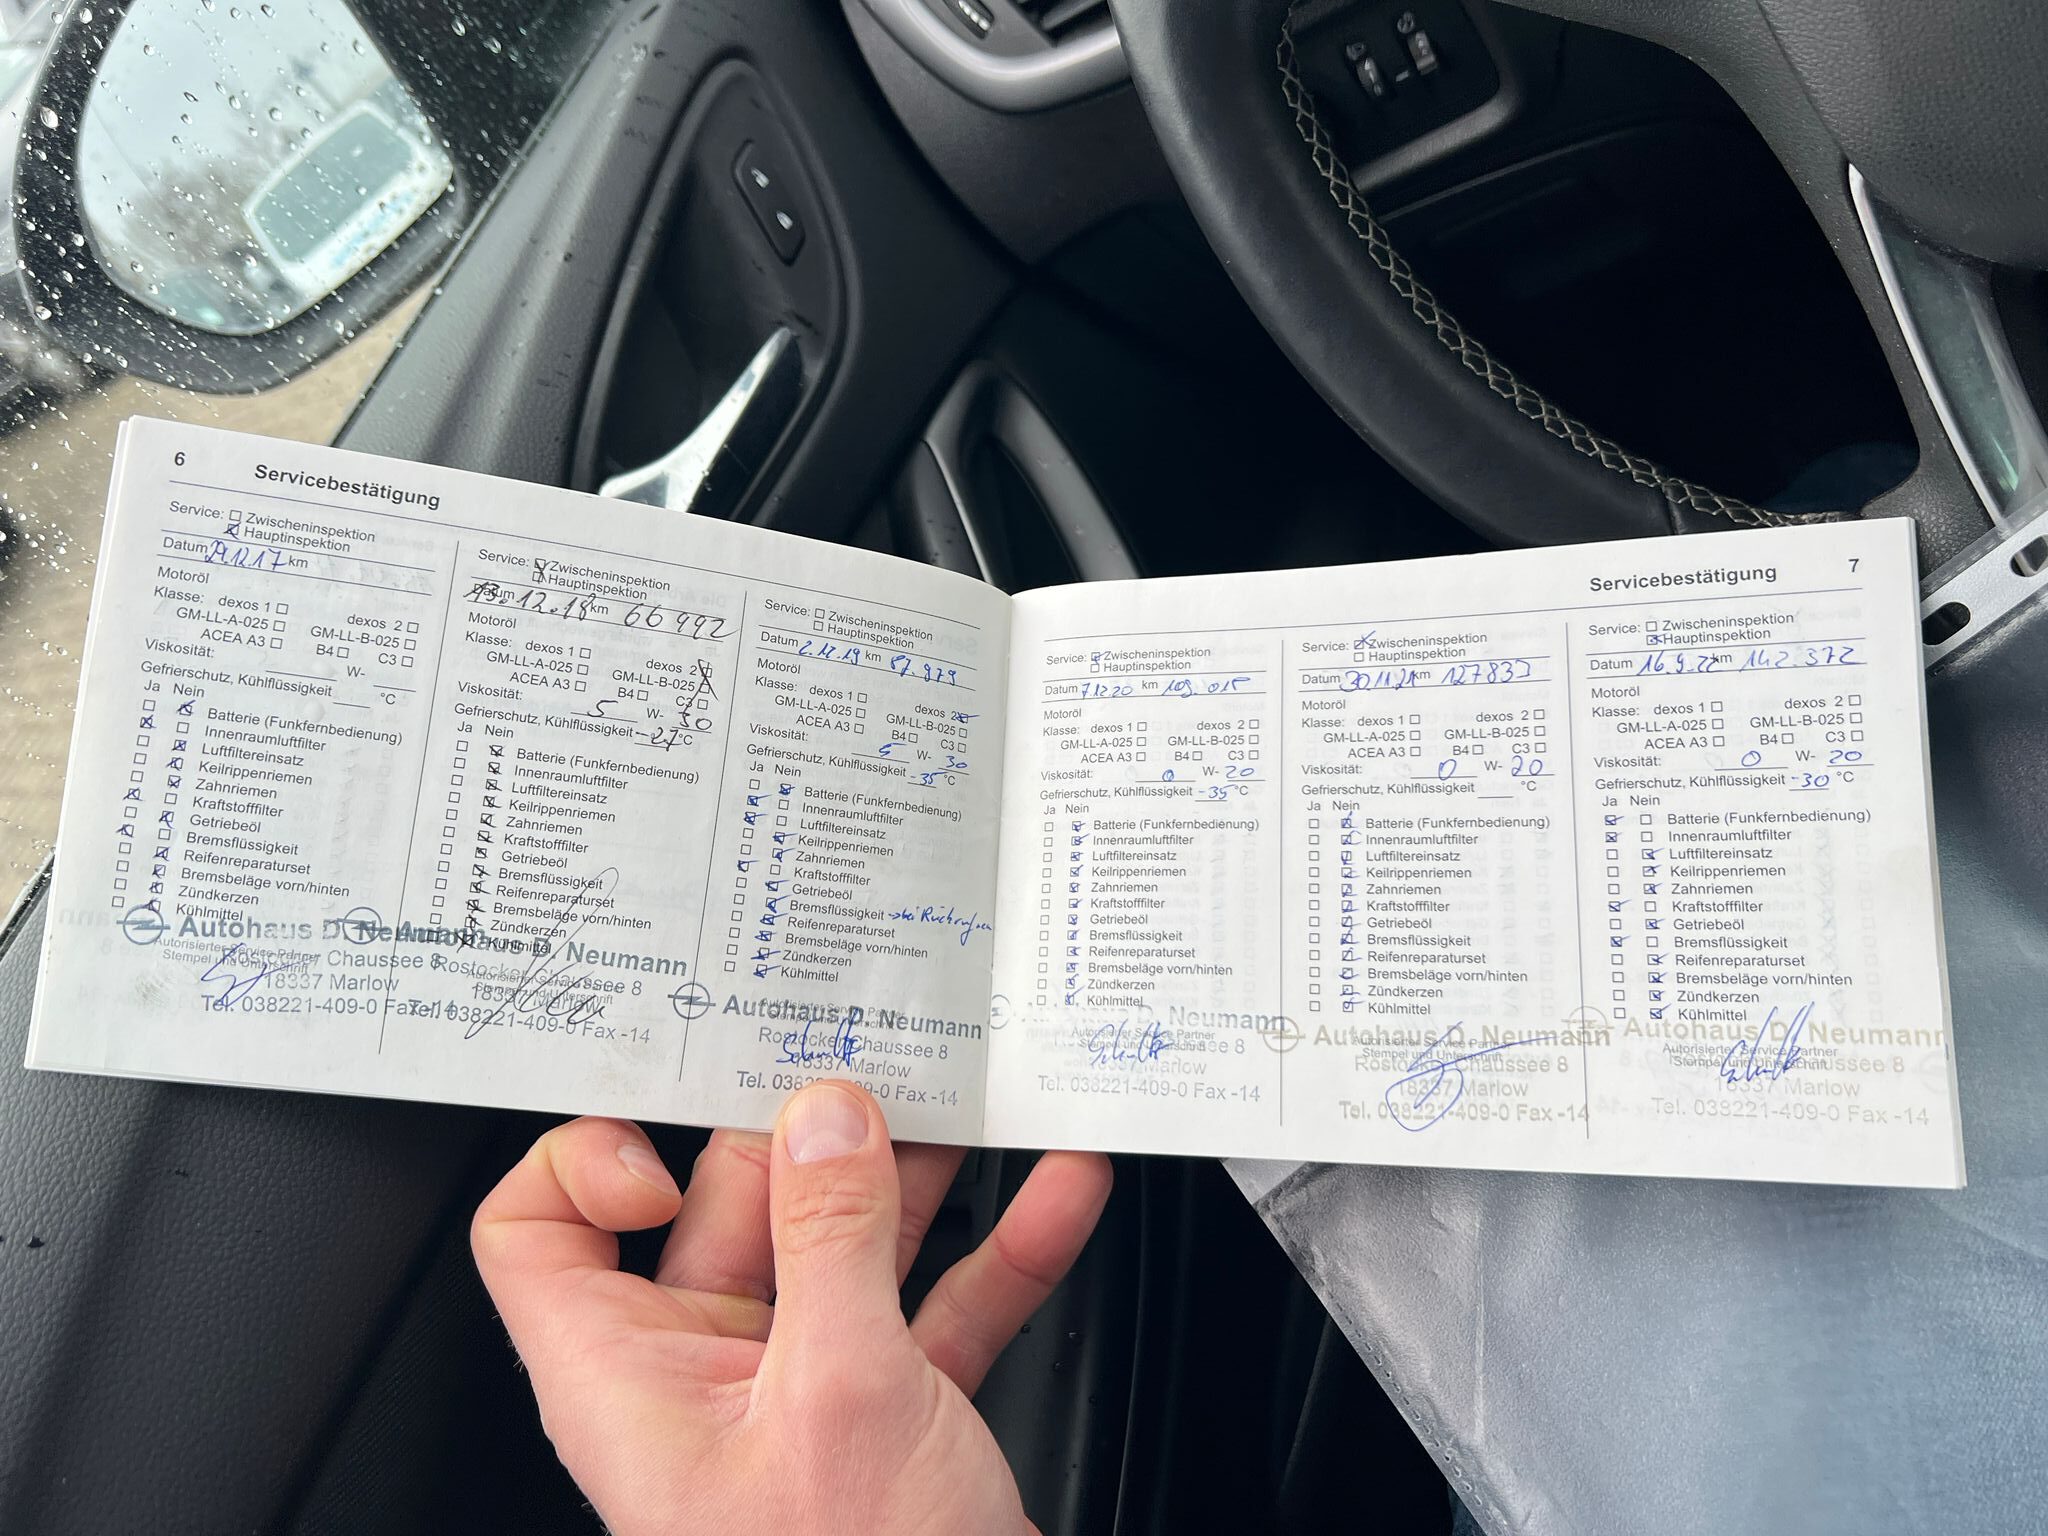 6
Servicebestätigung
Service: Zwischeninspektion
Hauptinspektion
Datum 29.12.17 km
Motoröl
Klasse: dexos 1 dexos 2
GM-LL-A-025 GM-LL-B-025
ACEA A3 B4 C3
Viskosität: W-
Gefrierschutz, Kühlflüssigkeit °C
Ja Nein
Batterie (Funkfernbedienung)
Innenraumluftfilter
Luftfiltereinsatz
Keilrippenriemen
Zahnriemen
Kraftstofffilter
Getriebeöl
Bremsflüssigkeit
Reifenreparaturset
Bremsbeläge vorn/hinten
Zündkerzen
Kühlmittel
Autohaus D. Neumann
Autorisierter Service Partner
Stempel und Unterschrift
Rostocker Chaussee 8
18337 Marlow
Tel. 038221-409-0 Fax -14
Service: Zwischeninspektion
Hauptinspektion
Datum 13.12.18 km 66 992
Motoröl
Klasse: dexos 1 dexos 2
GM-LL-A-025 GM-LL-B-025
ACEA A3 B4 C3
Viskosität: 5 W- 30
Gefrierschutz, Kühlflüssigkeit -27 °C
Ja Nein
Batterie (Funkfernbedienung)
Innenraumluftfilter
Luftfiltereinsatz
Keilrippenriemen
Zahnriemen
Kraftstofffilter
Getriebeöl
Bremsflüssigkeit
Reifenreparaturset
Bremsbeläge vorn/hinten
Zündkerzen
Kühlmittel
Autohaus D. Neumann
Autorisierter Service Partner
Stempel und Unterschrift
Rostocker Chaussee 8
18337 Marlow
Tel. 038221-409-0 Fax -14
Service: Zwischeninspektion
Hauptinspektion
Datum 2.12.19 km 87.979
Motoröl
Klasse: dexos 1 dexos 2
GM-LL-A-025 GM-LL-B-025
ACEA A3 B4 C3
Viskosität: 5 W- 30
Gefrierschutz, Kühlflüssigkeit -35 °C
Ja Nein
Batterie (Funkfernbedienung)
Innenraumluftfilter
Luftfiltereinsatz
Keilrippenriemen
Zahnriemen
Kraftstofffilter
Getriebeöl
Bremsflüssigkeit → bei
Reifenreparaturset
Bremsbeläge vorn/hinten
Zündkerzen
Kühlmittel
Autohaus D. Neumann
Autorisierter Service Partner
Stempel und Unterschrift
Rostocker Chaussee 8
18337 Marlow
Tel. 038221-409-0 Fax -14
Servicebestätigung
7
Service: Zwischeninspektion
Hauptinspektion
Datum 7.12.20 km 109.015
Motoröl
Klasse: dexos 1 dexos 2
GM-LL-A-025 GM-LL-B-025
ACEA A3 B4 C3
Viskosität: 0 W- 20
Gefrierschutz, Kühlflüssigkeit -35 °C
Ja Nein
Batterie (Funkfernbedienung)
Innenraumluftfilter
Luftfiltereinsatz
Keilrippenriemen
Zahnriemen
Kraftstofffilter
Getriebeöl
Bremsflüssigkeit
Reifenreparaturset
Bremsbeläge vorn/hinten
Zündkerzen
Kühlmittel
D. Neumann
Autorisierter Service Partner
Stempel und Unterschrift
Tel. 038221-409-0 Fax -14
Service: Zwischeninspektion
Hauptinspektion
Datum 30.11.21 km 127833
Motoröl
Klasse: dexos 1 dexos 2
GM-LL-A-025 GM-LL-B-025
ACEA A3 B4 C3
Viskosität: 0 W- 20
Gefrierschutz, Kühlflüssigkeit °C
Ja Nein
Batterie (Funkfernbedienung)
Innenraumluftfilter
Luftfiltereinsatz
Keilrippenriemen
Zahnriemen
Kraftstofffilter
Getriebeöl
Bremsflüssigkeit
Reifenreparaturset
Bremsbeläge vorn/hinten
Zündkerzen
Kühlmittel
Autohaus D. Neumann
Autorisierter Service Partner
Stempel und Unterschrift
Rostocker Chaussee 8
18337 Marlow
Tel. 038221-409-0 Fax -14
Service: Zwischeninspektion
Hauptinspektion
Datum 16.9.22 km 142.372
Motoröl
Klasse: dexos 1 dexos 2
GM-LL-A-025 GM-LL-B-025
ACEA A3 B4 C3
Viskosität: 0 W- 20
Gefrierschutz, Kühlflüssigkeit -30 °C
Ja Nein
Batterie (Funkfernbedienung)
Innenraumluftfilter
Luftfiltereinsatz
Keilrippenriemen
Zahnriemen
Kraftstofffilter
Getriebeöl
Bremsflüssigkeit
Reifenreparaturset
Bremsbeläge vorn/hinten
Zündkerzen
Kühlmittel
Autohaus D. Neumann
Autorisierter Service Partner
Stempel und Unterschrift
Chaussee 8
18337 Marlow
Tel. 038221-409-0 Fax -14